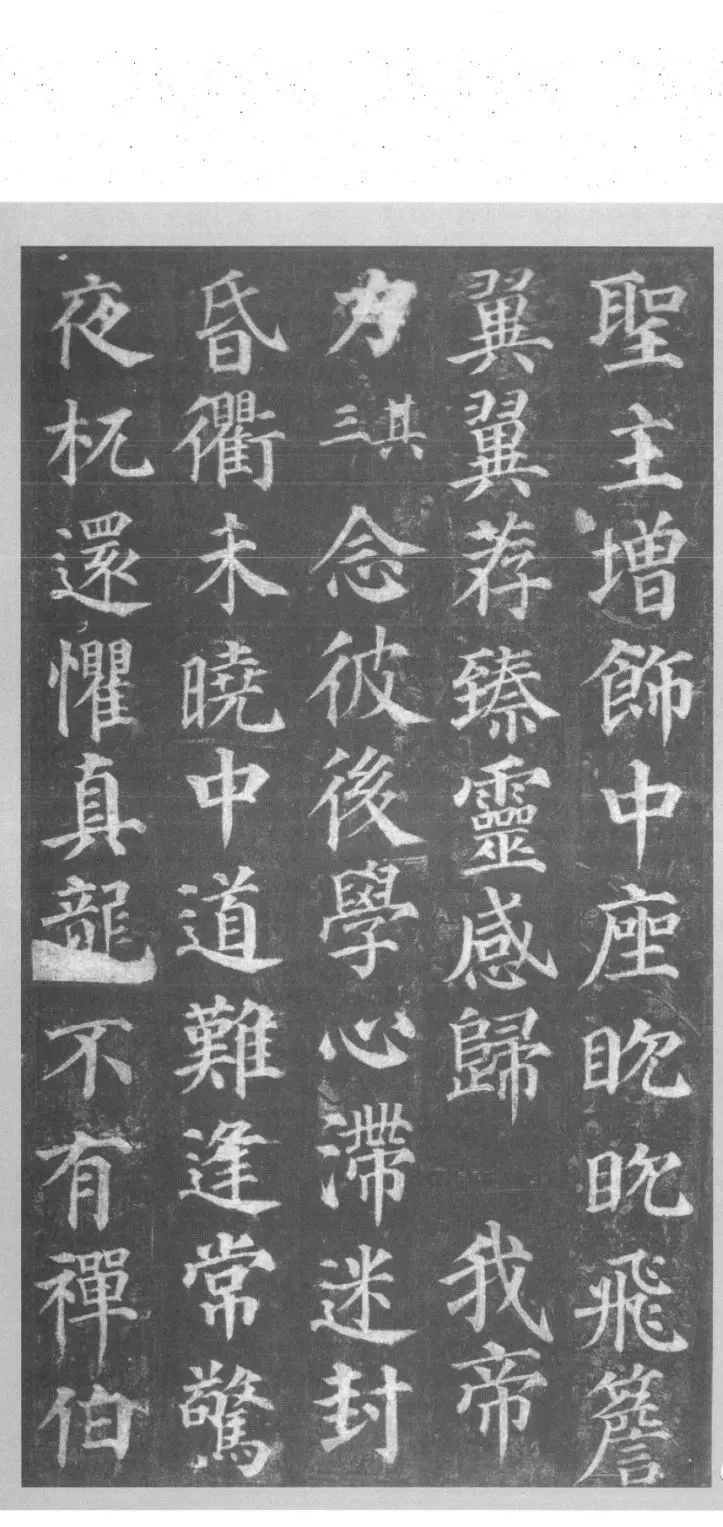 聖主增飾中座眈眈飛簷
翼翼荐臻靈感歸 我帝
力其三念彼後學心滯迷封
昏衢未曉中道難逢常驚
夜枙還懼真龍不有禪伯